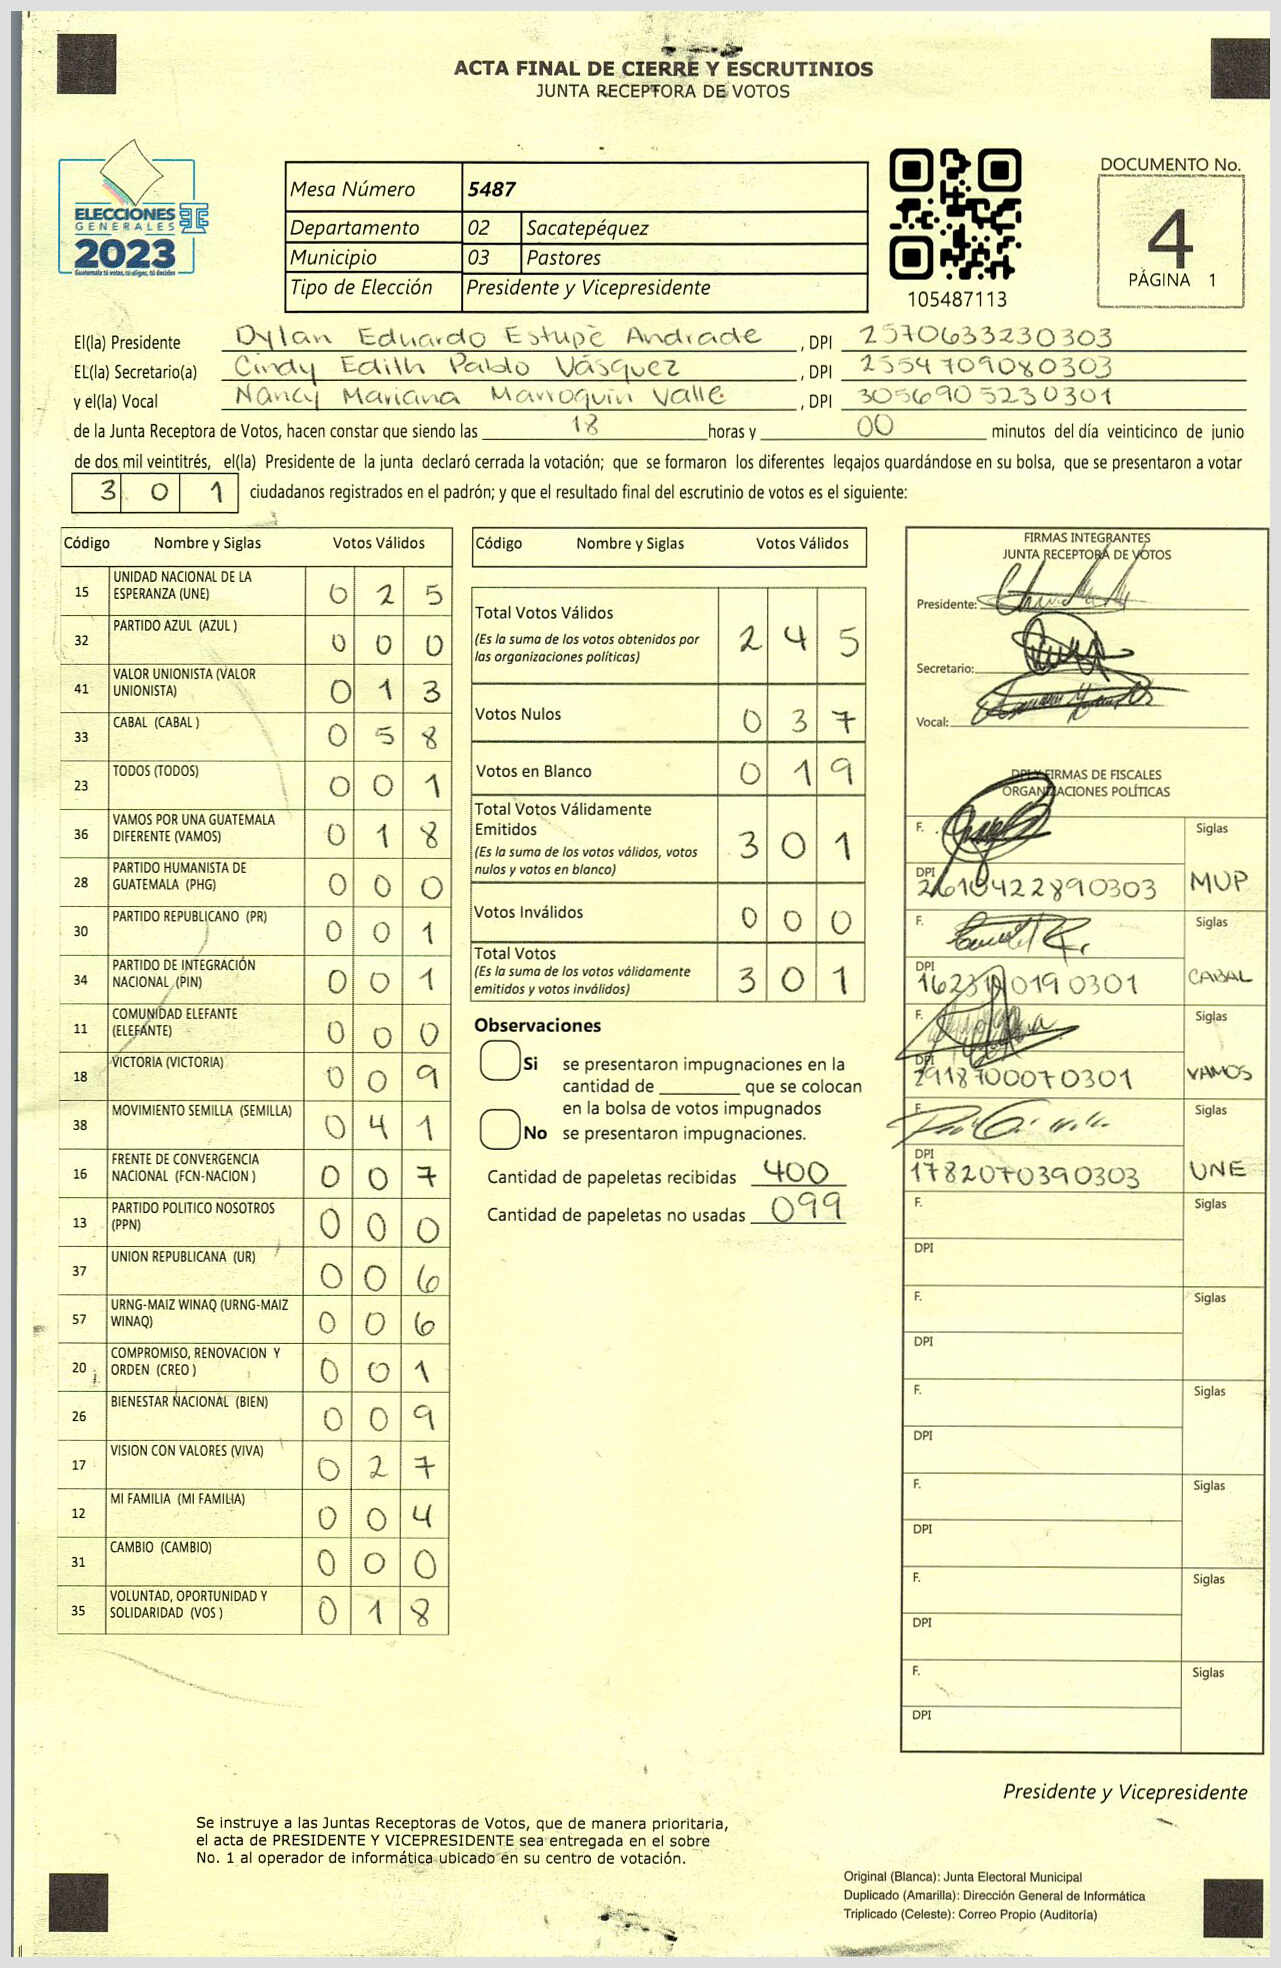 ACTA FINAL DE CIERRE Y ESCRUTINIOS
JUNTA RECEPTORA DE VOTOS
ELECCIONES
GENERALES
2023
Guatemala tú votas, tú eliges, tú decides
Mesa Número 5487
Departamento 02 Sacatepéquez
Municipio 03 Pastores
Tipo de Elección Presidente y Vicepresidente
105487113
DOCUMENTO No.
4
PÁGINA 1
El(la) Presidente Dylan Eduardo Estupe Andrade , DPI 2570633230303
EL(la) Secretario(a) Cindy Edith Pablo Vásquez , DPI 2554709080303
y el(la) Vocal Nancy Mariana Marroquin Valle , DPI 3056905230301
de la Junta Receptora de Votos, hacen constar que siendo las 18 horas y 00 minutos del día veinticinco de junio
de dos mil veintitrés, el(la) Presidente de la junta declaró cerrada la votación; que se formaron los diferentes legajos guardándose en su bolsa, que se presentaron a votar
301 ciudadanos registrados en el padrón; y que el resultado final del escrutinio de votos es el siguiente:
Código Nombre y Siglas Votos Válidos
15 UNIDAD NACIONAL DE LA ESPERANZA (UNE) 0 2 5
32 PARTIDO AZUL (AZUL ) 0 0 0
41 VALOR UNIONISTA (VALOR UNIONISTA) 0 1 3
33 CABAL (CABAL ) 0 5 8
23 TODOS (TODOS) 0 0 1
36 VAMOS POR UNA GUATEMALA DIFERENTE (VAMOS) 0 1 8
28 PARTIDO HUMANISTA DE GUATEMALA (PHG) 0 0 0
30 PARTIDO REPUBLICANO (PR) 0 0 1
34 PARTIDO DE INTEGRACIÓN NACIONAL (PIN) 0 0 1
11 COMUNIDAD ELEFANTE (ELEFANTE) 0 0 0
18 VICTORIA (VICTORIA) 0 0 9
38 MOVIMIENTO SEMILLA (SEMILLA) 0 4 1
16 FRENTE DE CONVERGENCIA NACIONAL (FCN-NACION ) 0 0 7
13 PARTIDO POLITICO NOSOTROS (PPN) 0 0 0
37 UNION REPUBLICANA (UR) 0 0 6
57 URNG-MAIZ WINAQ (URNG-MAIZ WINAQ) 0 0 6
20 COMPROMISO, RENOVACION Y ORDEN (CREO ) 0 0 1
26 BIENESTAR NACIONAL (BIEN) 0 0 9
17 VISION CON VALORES (VIVA) 0 2 7
12 MI FAMILIA (MI FAMILIA) 0 0 4
31 CAMBIO (CAMBIO) 0 0 0
35 VOLUNTAD, OPORTUNIDAD Y SOLIDARIDAD (VOS ) 0 1 8
Código Nombre y Siglas Votos Válidos
Total Votos Válidos 2 4 5
(Es la suma de los votos obtenidos por
las organizaciones políticas)
Votos Nulos 0 3 7
Votos en Blanco 0 1 9
Total Votos Válidamente
Emitidos 3 0 1
(Es la suma de los votos válidos, votos
nulos y votos en blanco)
Votos Inválidos 0 0 0
Total Votos 3 0 1
(Es la suma de los votos válidamente
emitidos y votos inválidos)
Observaciones
Si se presentaron impugnaciones en la
cantidad de ________ que se colocan
en la bolsa de votos impugnados
No se presentaron impugnaciones.
Cantidad de papeletas recibidas 400
Cantidad de papeletas no usadas 099
FIRMAS INTEGRANTES
JUNTA RECEPTORA DE VOTOS
Presidente:
Secretario:
Vocal:
DPI Y FIRMAS DE FISCALES
ORGANIZACIONES POLÍTICAS
F. Siglas
DPI 2610422890303 MUP
F. Siglas
DPI CABAL
F. Siglas
DPI 2918700070301 VAMOS
F. Siglas
DPI 1782070390303 UNE
F. Siglas
DPI
F. Siglas
DPI
F. Siglas
DPI
F. Siglas
DPI
F. Siglas
DPI
F. Siglas
DPI
Presidente y Vicepresidente
Se instruye a las Juntas Receptoras de Votos, que de manera prioritaria,
el acta de PRESIDENTE Y VICEPRESIDENTE sea entregada en el sobre
No. 1 al operador de informática ubicado en su centro de votación.
Original (Blanca): Junta Electoral Municipal
Duplicado (Amarilla): Dirección General de Informática
Triplicado (Celeste): Correo Propio (Auditoría)